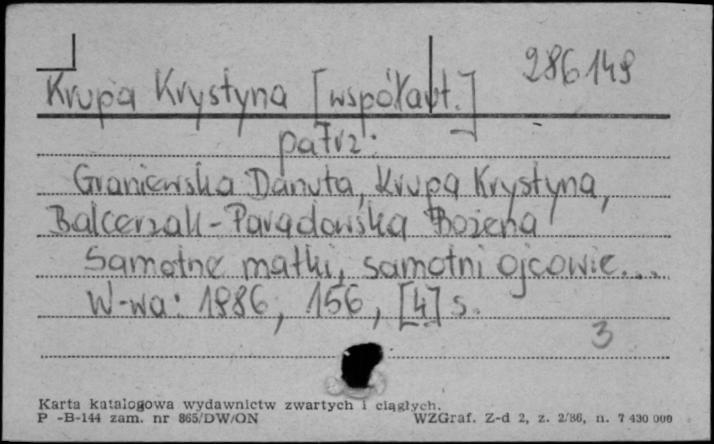 286149
Krupa Krystyna [współaut.]
patrz:
Graniewska Danuta, Krupa Krystyna,
Balcerzak-Paradowska Bożena
Samotne matki, samotni ojcowie...
W-wa: 1986, 156, [4] s.
3
Karta katalogowa wydawnictw zwartych i ciągłych.
P -B-144 zam. nr 865/DW/ON WZGraf. Z-d 2, z. 2/86, n. 7 430 000